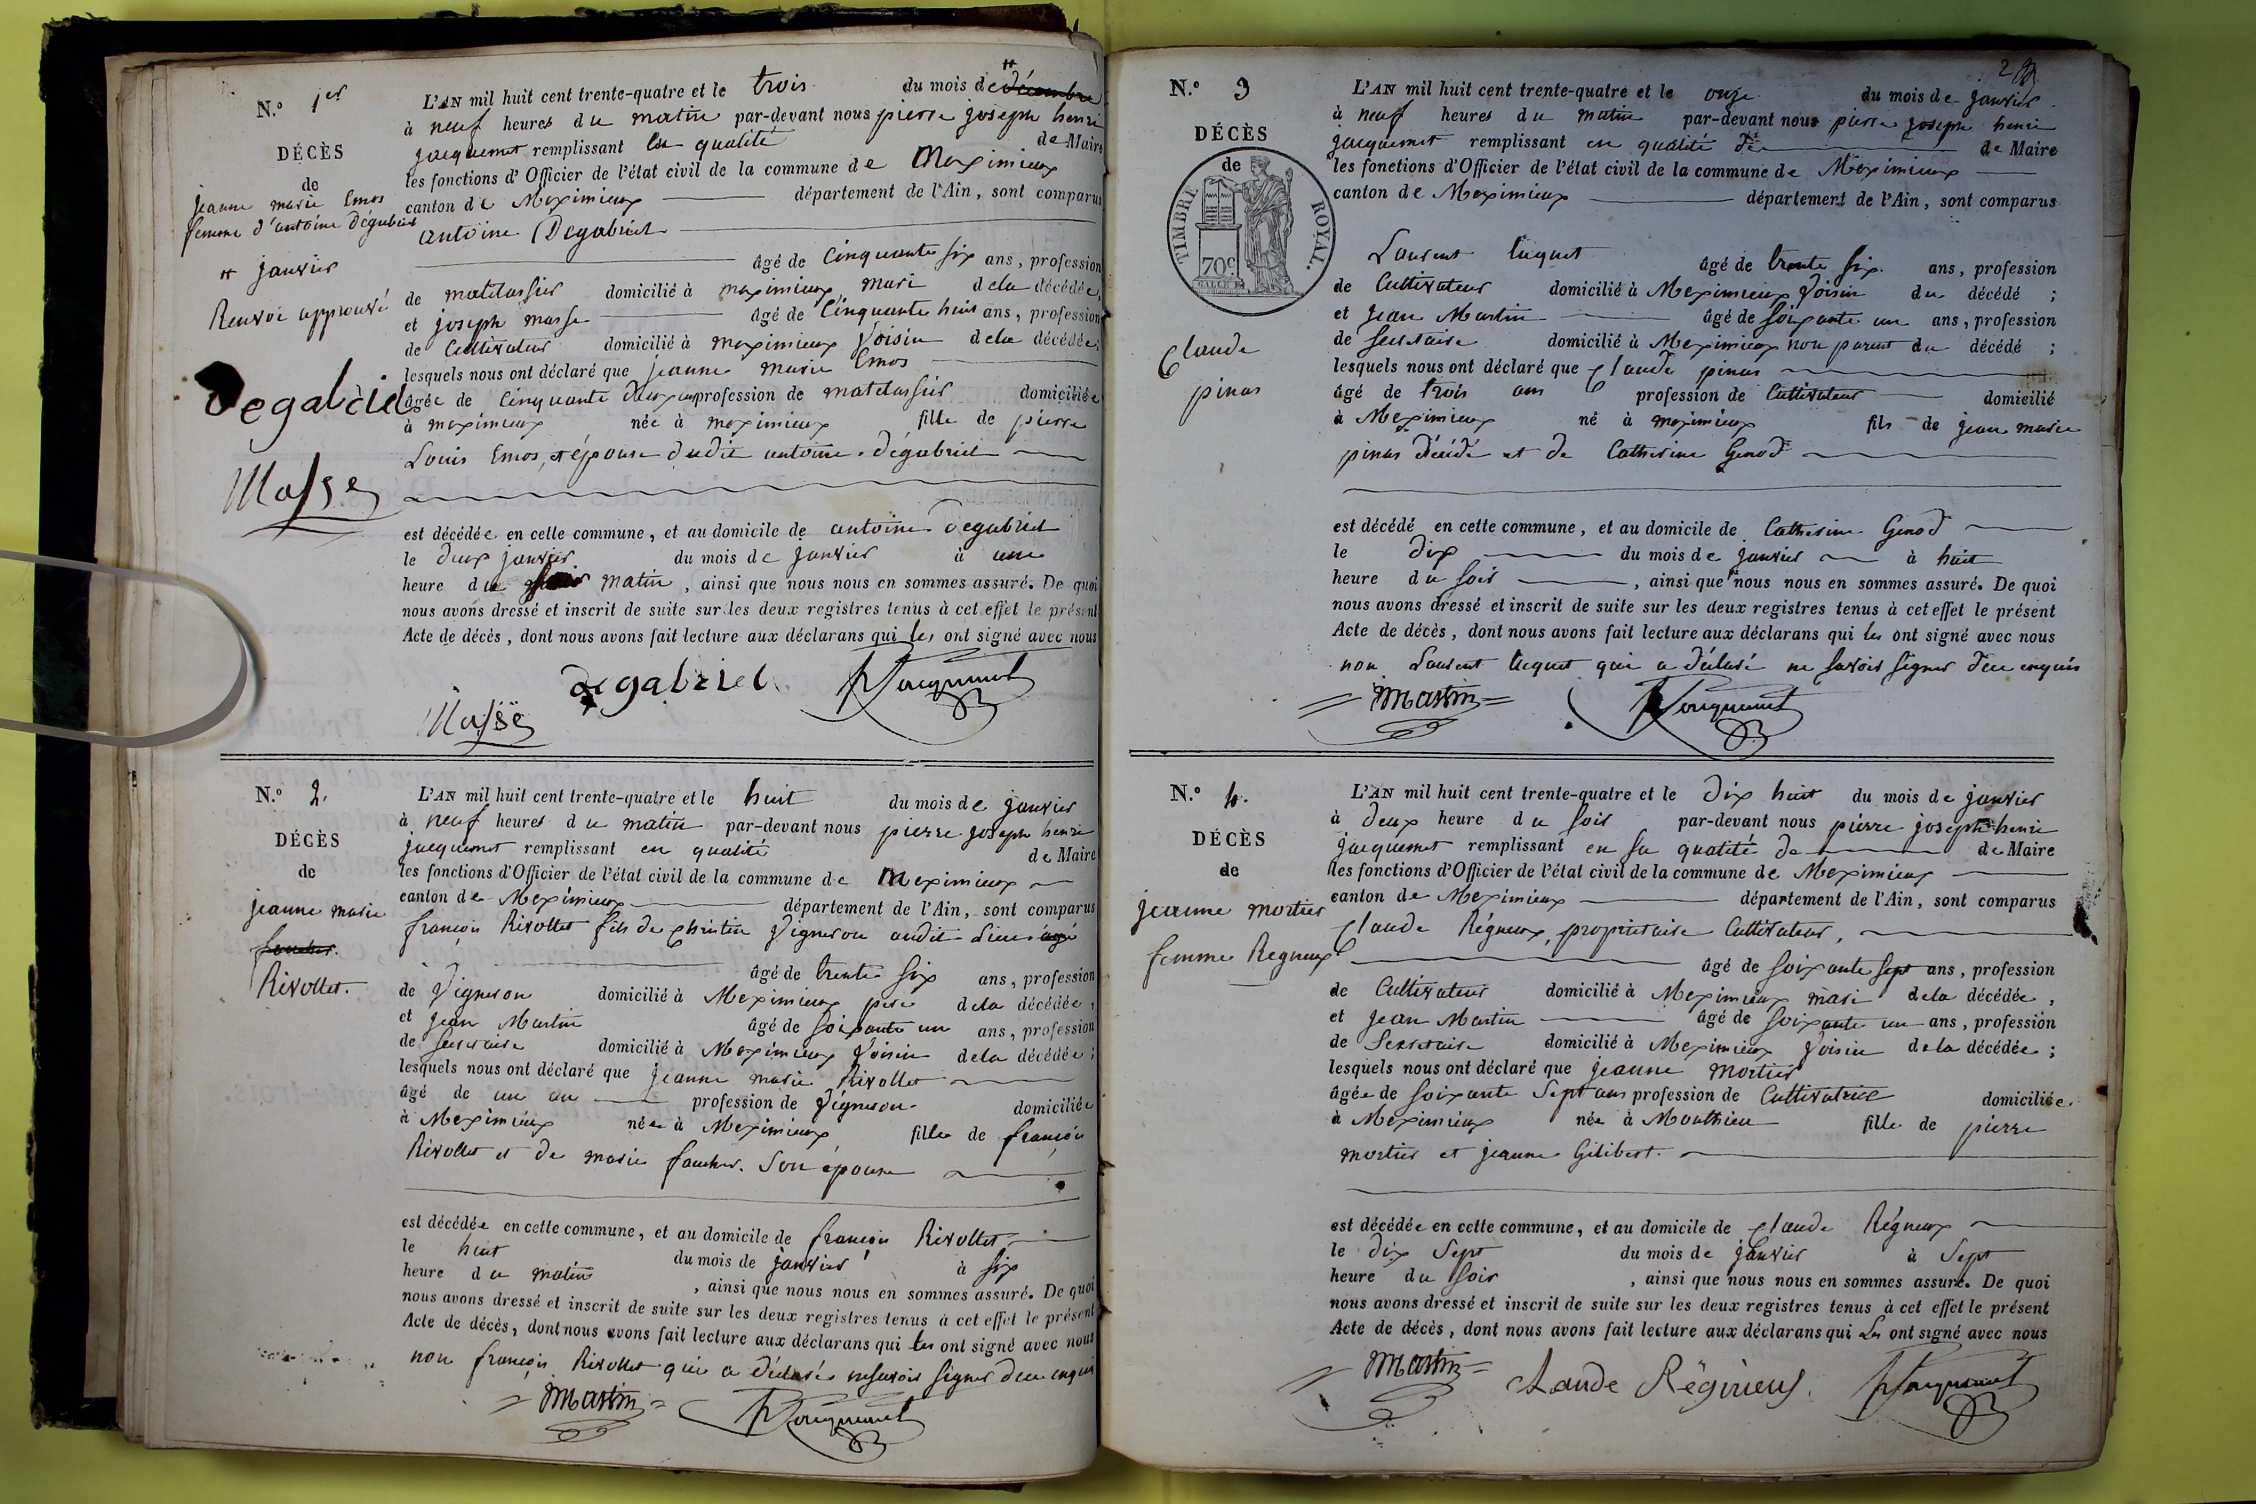 N.° 1er
DÉCÈS
de
jeanne marie Emos
femme d'antoine Dégabriel
# janvier
Renvoi approuvé
Degabriel
Masse
L'AN mil huit cent trente-quatre et le trois du mois de # décembre
à neuf heures du matin par-devant nous pierre joseph henri
jacquemet remplissant en qualité de Maire
les fonctions d'Officier de l'état civil de la commune de Meximieux
canton de Meximieux département de l'Ain, sont comparus
antoine Degabriel
âgé de cinquante six ans, profession
de matelassier domicilié à meximieux mari dela décédée,
et joseph masse âgé de cinquante huit ans, profession
de Cultivateur domicilié à meximieux Voisin dela décédée;
lesquels nous ont déclaré que jeanne marie Emos
âgée de cinquante deux ans profession de matelassier domiciliée
à meximieux née à meximieux fille de pierre
Louis Emos, et épouse dudit antoine dégabriel
est décédée en cette commune, et au domicile de antoine Degabriel
le deux janvier du mois de janvier à une
heure du matin, ainsi que nous nous en sommes assuré. De quoi
nous avons dressé et inscrit de suite sur les deux registres tenus à cet effet le présent
Acte de décès, dont nous avons fait lecture aux déclarans qui les ont signé avec nous
degabriel Jacquemet
Masse
N.° 2.
DÉCÈS
de
jeanne marie
faucher.
Rivollet.
L'AN mil huit cent trente-quatre et le huit du mois de janvier
à neuf heures du matin par-devant nous pierre joseph henri
jacquemet remplissant en qualité de Maire
les fonctions d'Officier de l'état civil de la commune de Meximieux
canton de Meximieux département de l'Ain, sont comparus
françois Rivollet fils de Christin Vigneron audit Lieu âgé
âgé de trente six ans, profession
de Vigneron domicilié à Meximieux père dela décédée,
et jean Martin âgé de soixante un ans, profession
de secretaire domicilié à Meximieux Voisin dela décédée;
lesquels nous ont déclaré que jeanne marie Rivollet
âgé de un an profession de Vigneron domiciliée
à Meximieux née à Meximieux fille de françois
Rivollet et de marie faucher. Son épouse
est décédée en cette commune, et au domicile de françois Rivollet
le huit du mois de janvier à six
heure du matin, ainsi que nous nous en sommes assuré. De quoi
nous avons dressé et inscrit de suite sur les deux registres tenus à cet effet le présent
Acte de décès, dont nous avons fait lecture aux déclarans qui les ont signé avec nous
non françois Rivollet qui a déclaré ne savoir signer dece enquis
Martin Jacquemet
2
N.° 3
DÉCÈS
de
TIMBRE ROYAL.
70c
Claude
pinas
L'AN mil huit cent trente-quatre et le onze du mois de janvier
à neuf heures du matin par-devant nous pierre joseph henri
jacquemet remplissant en qualité de de Maire
les fonctions d'Officier de l'état civil de la commune de Meximieux
canton de Meximieux département de l'Ain, sont comparus
Laurent luquet âgé de trente six ans, profession
de Cultivateur domicilié à Meximieux Voisin du décédé;
et jean Martin âgé de soixante un ans, profession
de secretaire domicilié à Meximieux non parent du décédé;
lesquels nous ont déclaré que Claude pinas
âgé de trois ans profession de Cultivateur domicilié
à Meximieux né à meximieux fils de jean marie
pinas décédé et de Catherine Genod
est décédé en cette commune, et au domicile de Catherine Genod
le dix du mois de janvier à huit
heure du soir, ainsi que nous nous en sommes assuré. De quoi
nous avons dressé et inscrit de suite sur les deux registres tenus à cet effet le présent
Acte de décès, dont nous avons fait lecture aux déclarans qui les ont signé avec nous
non Laurent luquet qui a déclaré ne savoir signer dece enquis
Martin Jacquemet
N.° 4.
DÉCÈS
de
jeanne mortier
femme Regneux
L'AN mil huit cent trente-quatre et le dix huit du mois de janvier
à deux heure du soir par-devant nous pierre joseph henri
jacquemet remplissant en sa qualité de de Maire
les fonctions d'Officier de l'état civil de la commune de Meximieux
canton de Meximieux département de l'Ain, sont comparus
Claude Régneux, propriétaire Cultivateur,
âgé de soixante sept ans, profession
de Cultivateur domicilié à Meximieux mari dela décédée,
et jean Martin âgé de soixante un ans, profession
de Secretaire domicilié à Meximieux Voisin dela décédée;
lesquels nous ont déclaré que jeanne mortier
âgée de soixante Sept ans profession de Cultivatrice domiciliée
à Meximieux née à Monthieu fille de pierre
mortier et jeanne Gilibert.
est décédée en cette commune, et au domicile de Claude Régneux
le dix Sept du mois de janvier à Sept
heure du soir, ainsi que nous nous en sommes assuré. De quoi
nous avons dressé et inscrit de suite sur les deux registres tenus à cet effet le présent
Acte de décès, dont nous avons fait lecture aux déclarans qui Les ont signé avec nous
Martin Claude Régnieus. Jacquemet